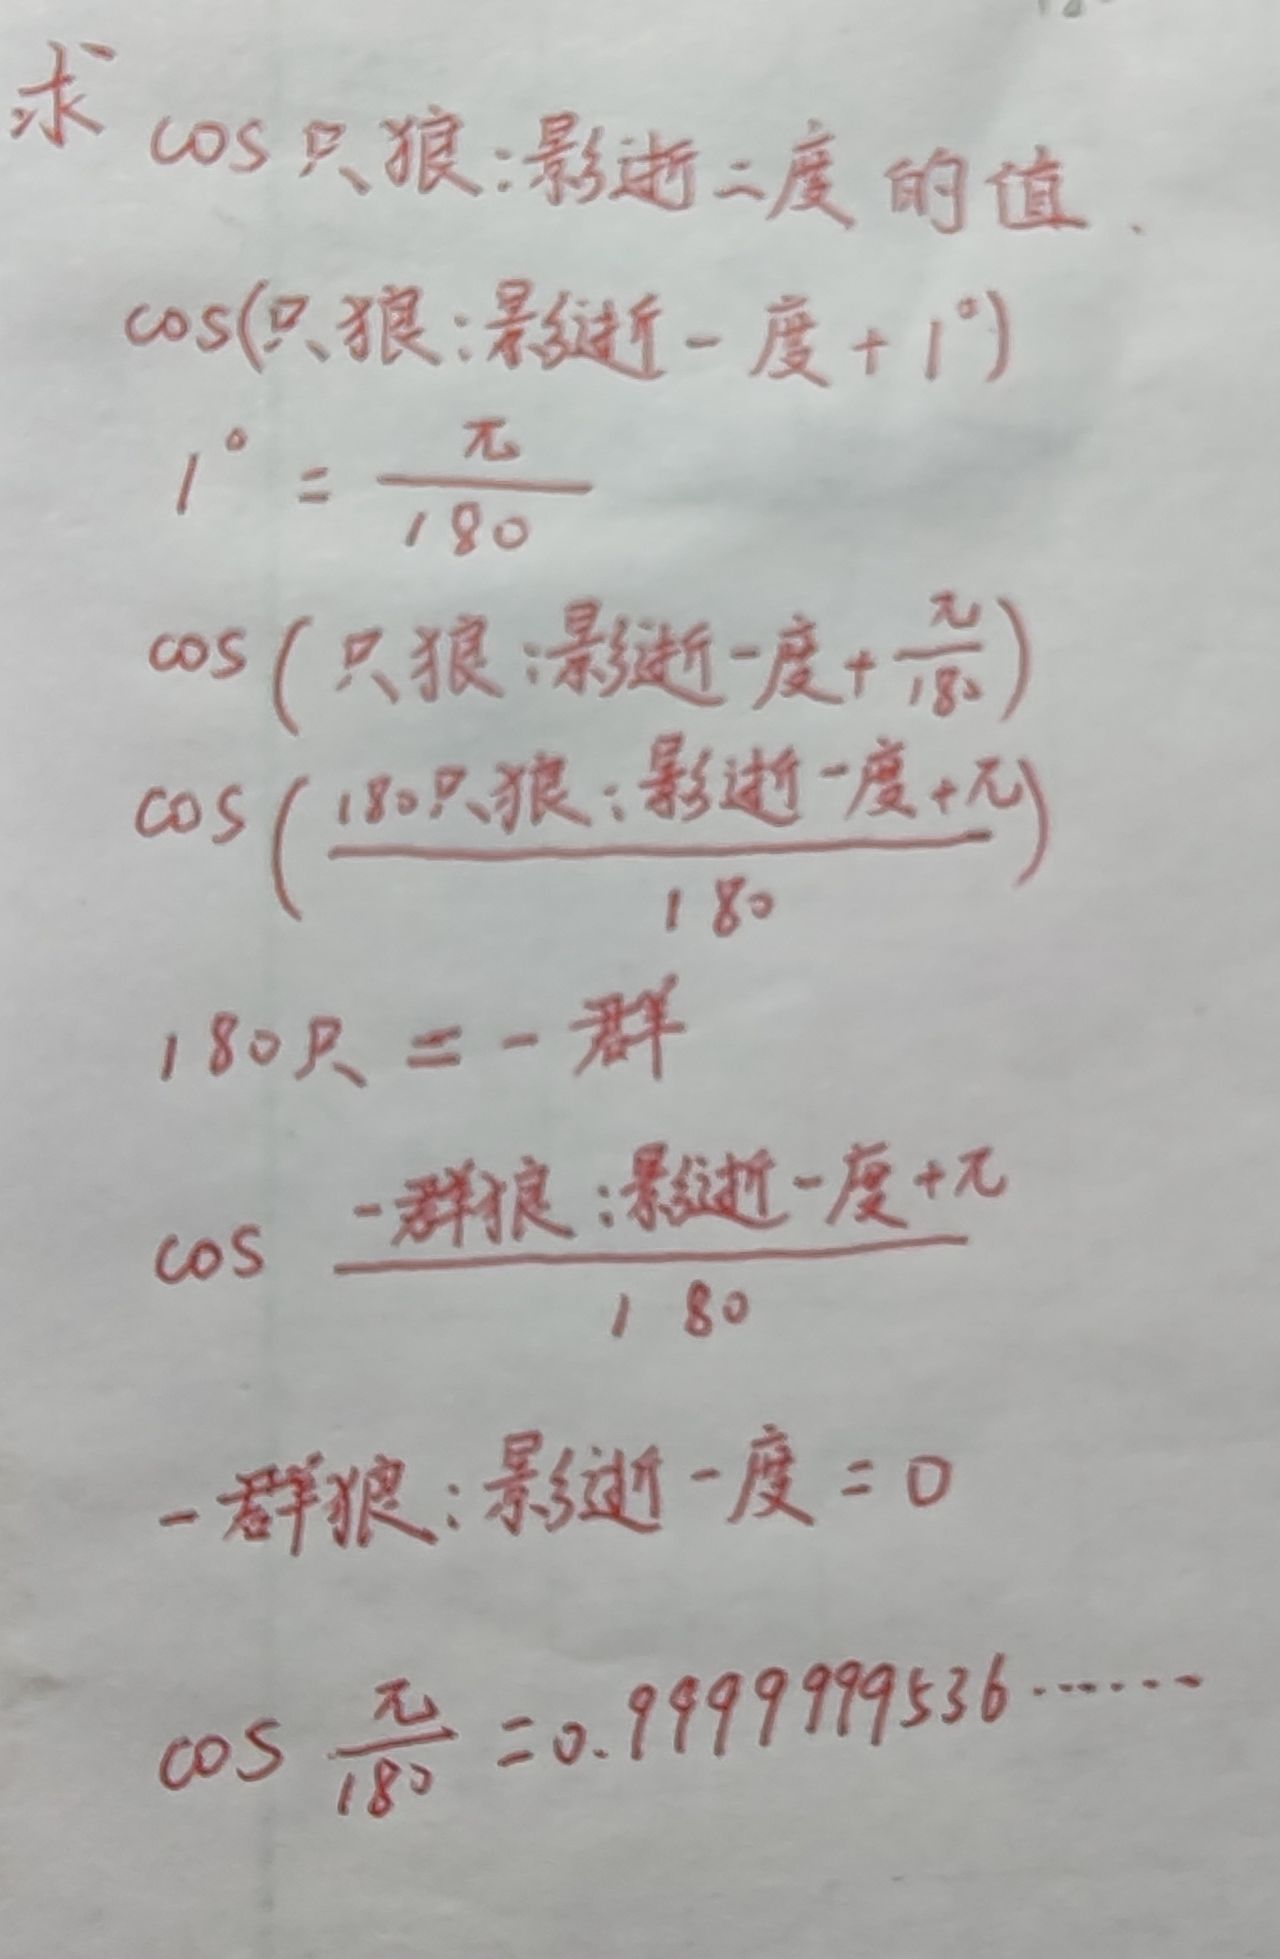 求 cos只狼:影逝二度的值.
cos(只狼:影逝一度+1°)
1° = π/180
cos(只狼:影逝一度+π/180)
cos(180只狼:影逝一度+π/180)
180只 = 一群
cos 一群狼:影逝一度+π/180
一群狼:影逝一度=0
cos π/180 =0.9999999536……